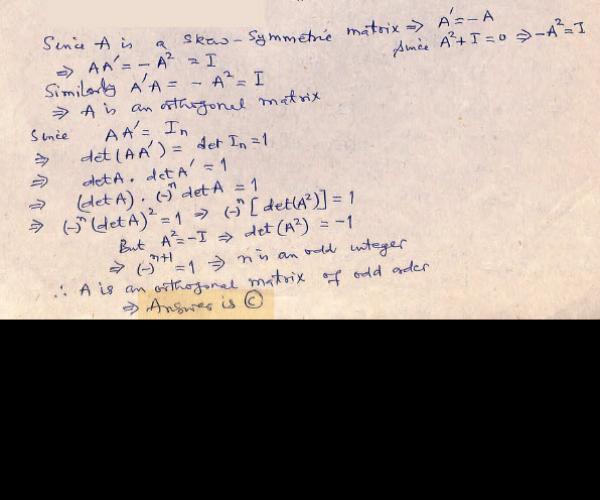 Since A is a skew-symmetric matrix ⇒ A' = -A
since A² + I = 0 ⇒ -A² = I
⇒ AA' = -A² = I
Similarly A'A = -A² = I
⇒ A is an orthogonal matrix
Since AA' = Iₙ
⇒ det(AA') = det Iₙ = 1
⇒ det A . det A' = 1
⇒ (det A) . (-)ⁿ det A = 1
⇒ (-)ⁿ (det A)² = 1 ⇒ (-)ⁿ [det(A²)] = 1
But A² = -I ⇒ det(A²) = -1
⇒ (-)ⁿ⁺¹ = 1 ⇒ n is an odd integer
∴ A is an orthogonal matrix of odd order
⇒ Answer is Ⓒ